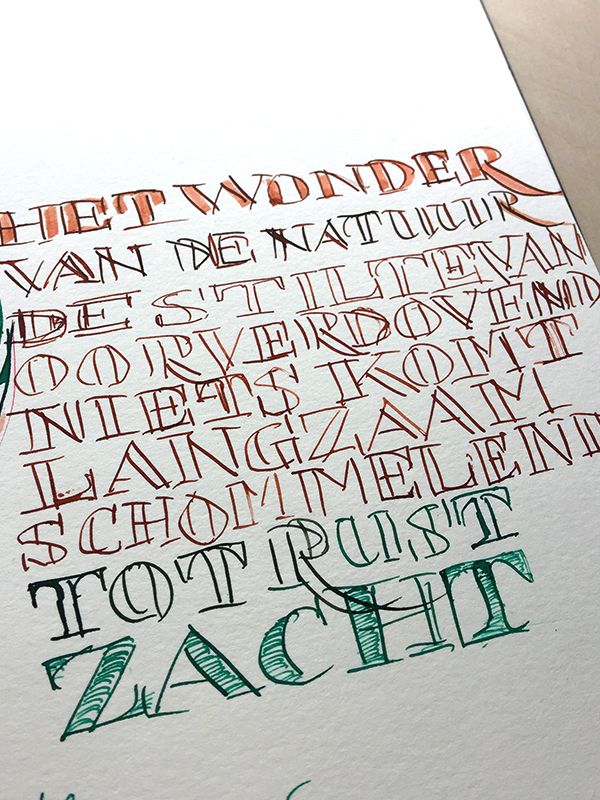 HET WONDER
VAN DE NATUUR
DE STILTE VAN
OORVERDOVEND
NIETS KOMT
LANGZAAM
SCHOMMELEND
TOT RUST
ZACHT